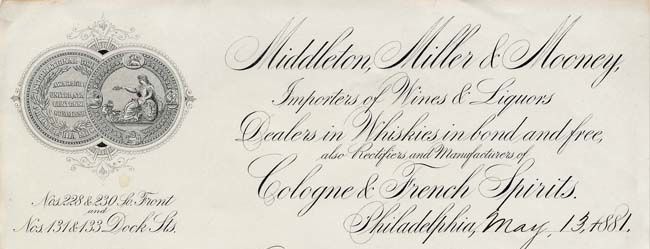 Middleton, Miller & Mooney,
Importers of Wines & Liquors
Dealers in Whiskies in bond and free,
also Rectifiers and Manufacturers of
Cologne & French Spirits.
Philadelphia, May 13, 1881.
Nos. 228 & 230 So. Front
and
Nos. 131 & 133 Dock Sts.